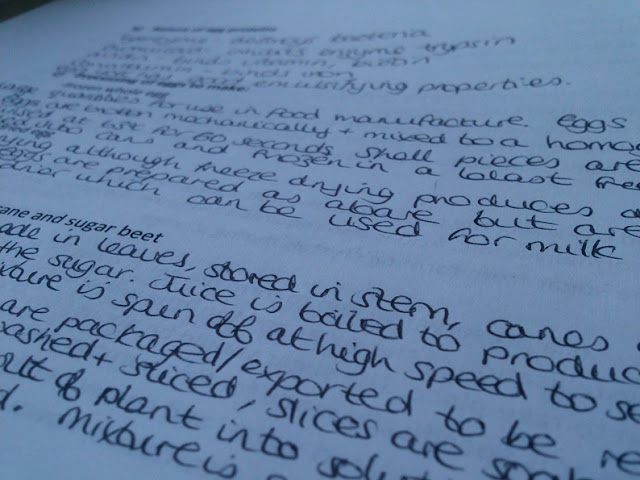 enzyme - destroys bacteria
inhibits enzyme trypsin
binds vitamin, biotin
binds iron
emulsifying properties.
whole egg
quantities for use in food manufacture. Eggs
eggs are broken mechanically + mixed to a homog
at for 60 seconds. Small pieces are
into cans and frozen in a blast free
drying although freeze drying produces a
eggs are prepared as above but are
which can be used for milk
cane and sugar beet
made in leaves, stored in stem, canes
the sugar. Juice is boiled to produc
mixture is spun off at high speed to se
are packaged/exported to be re
washed + sliced, slices are soak
of plant into solut
d. Mixture is